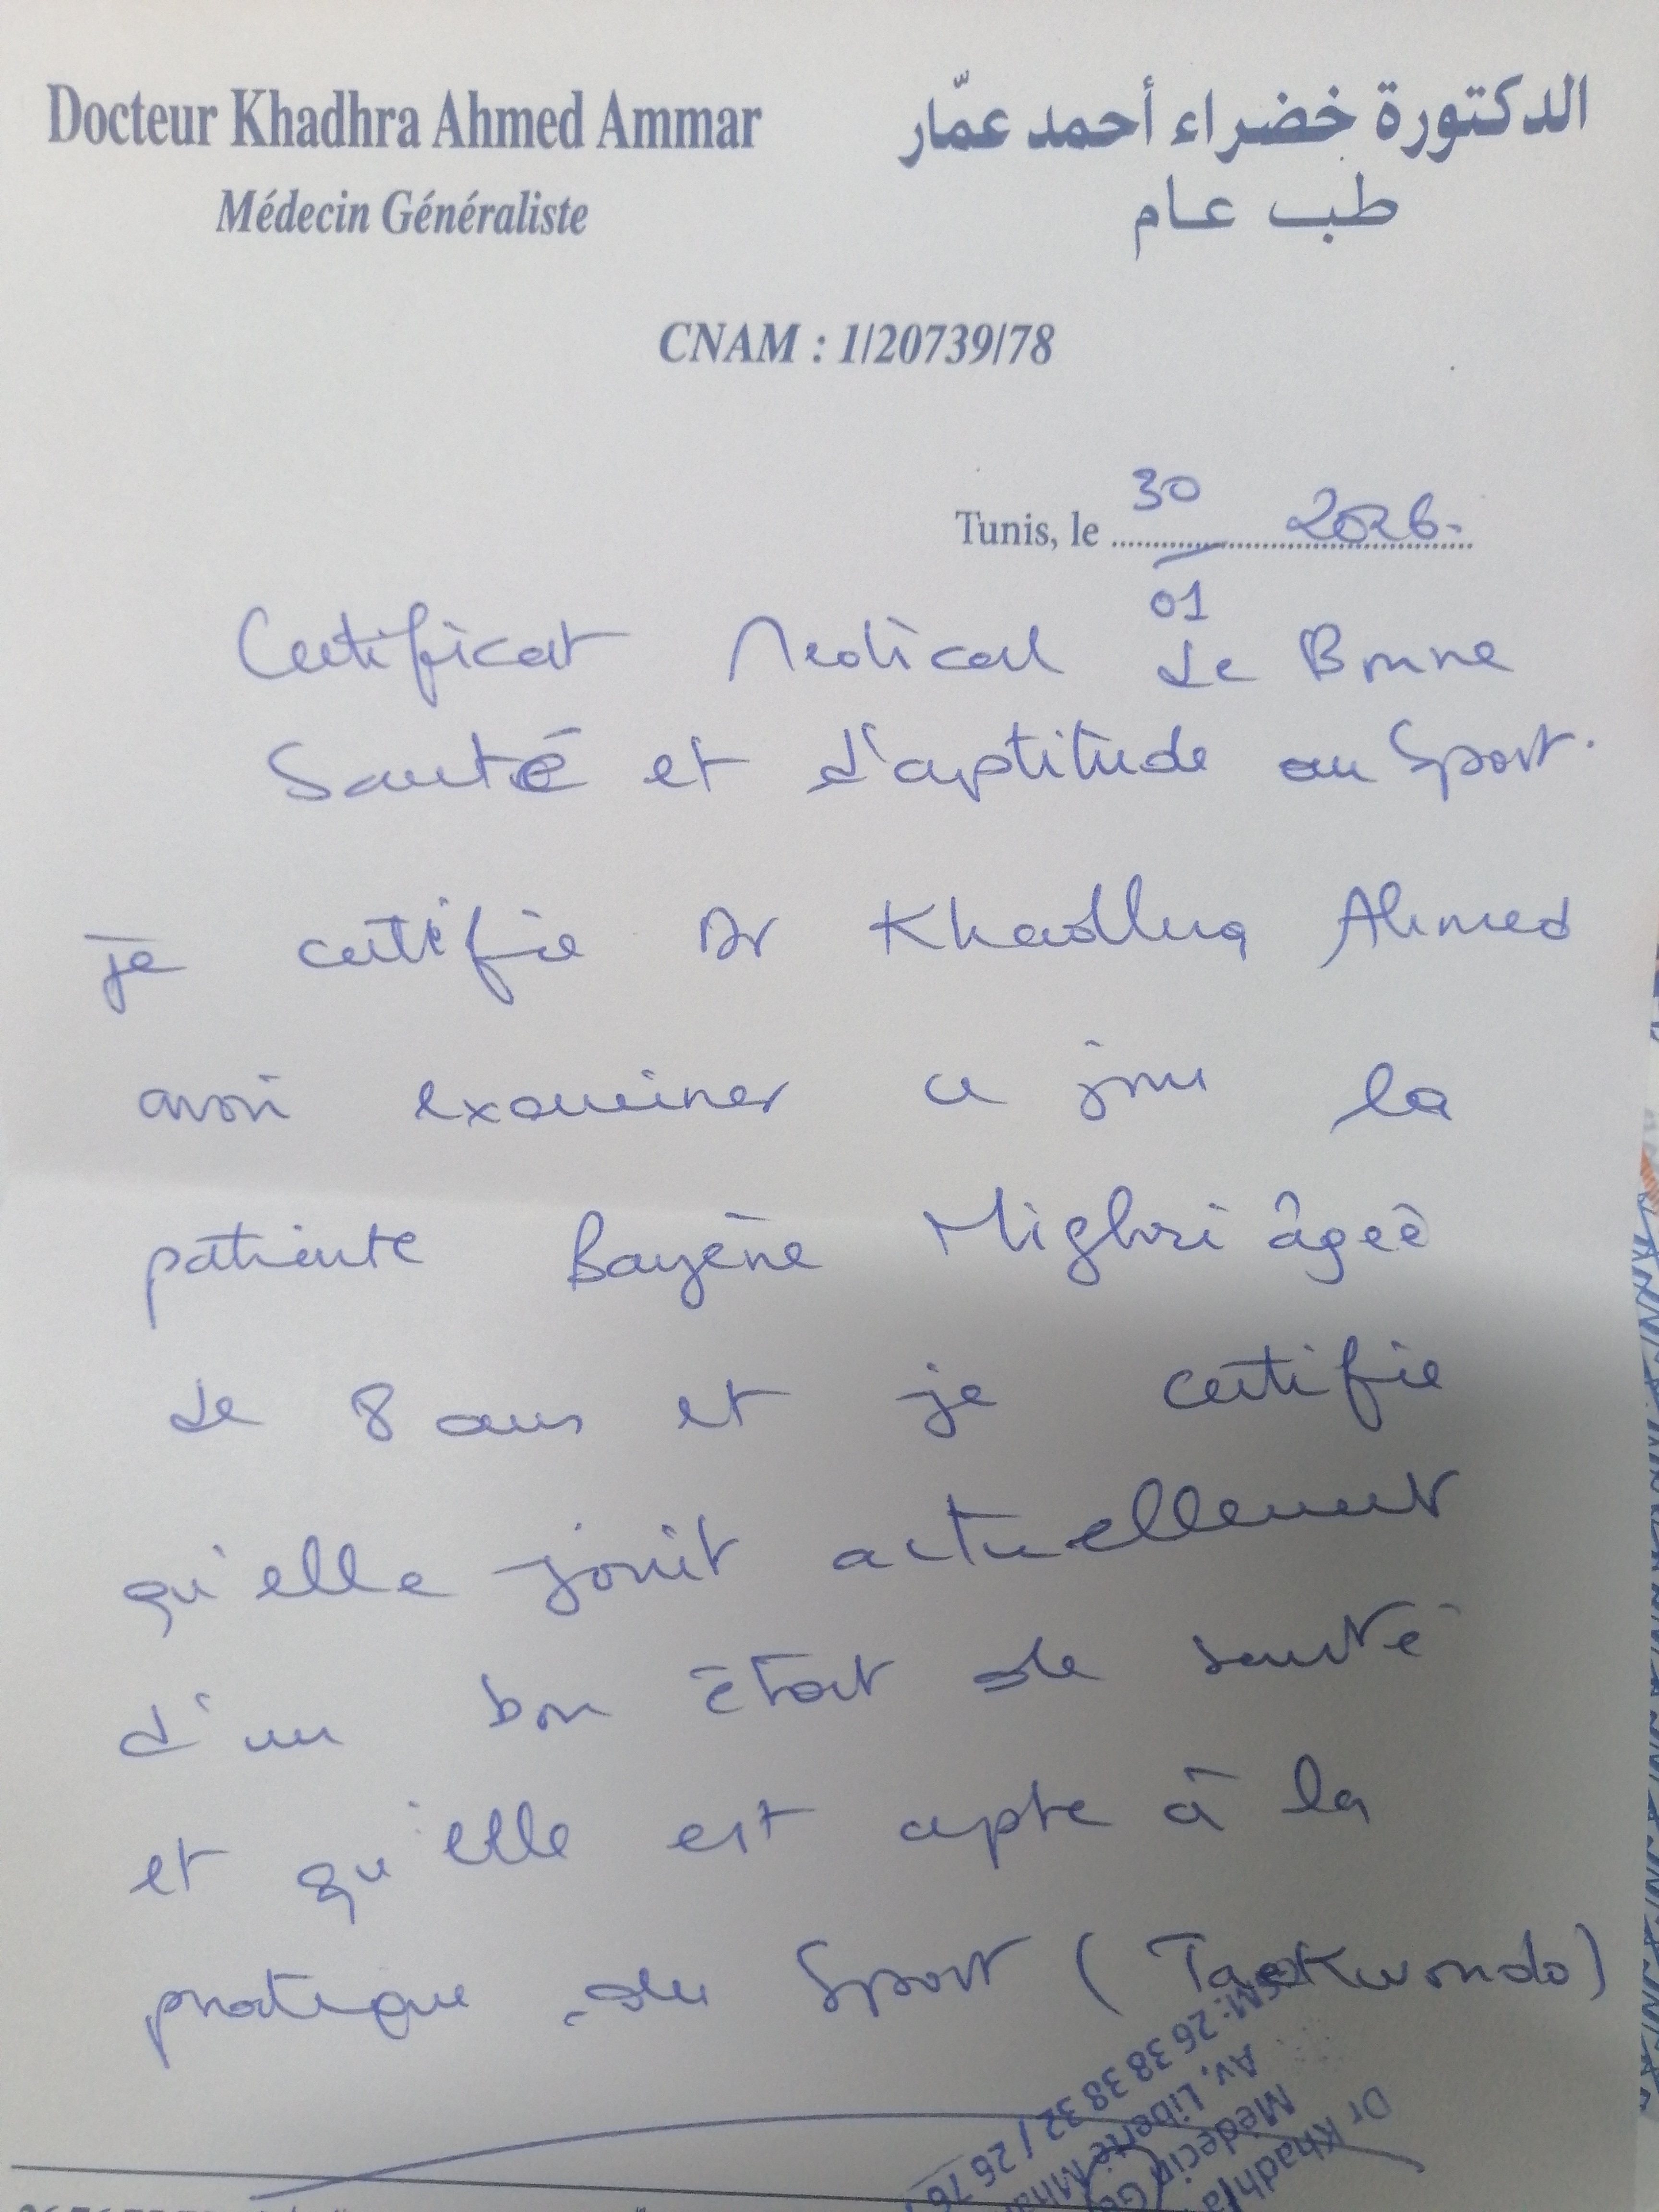 Docteur Khadhra Ahmed Ammar
الدكتورة خضراء أحمد عمّار
Médecin Généraliste
طب عام
CNAM : 1/20739/78
Tunis, le 30/01 2026.
Certificat Medical de Bonne
Santé et d'aptitude au Sport.
je certifie Dr Khadhra Ahmed
avoir examiner ce jour la
patiente Bayène Mighri âgeè
de 8 ans et je certifie
qu'elle jouit actuellement
d'un bon état de santé
et qu'elle est apte à la
pratique du Sport (Taekwondo)
Dr Khadhra
Médecin Gé
Av. Liberté Mha
GSM: 26 38 38 32 / 26 76